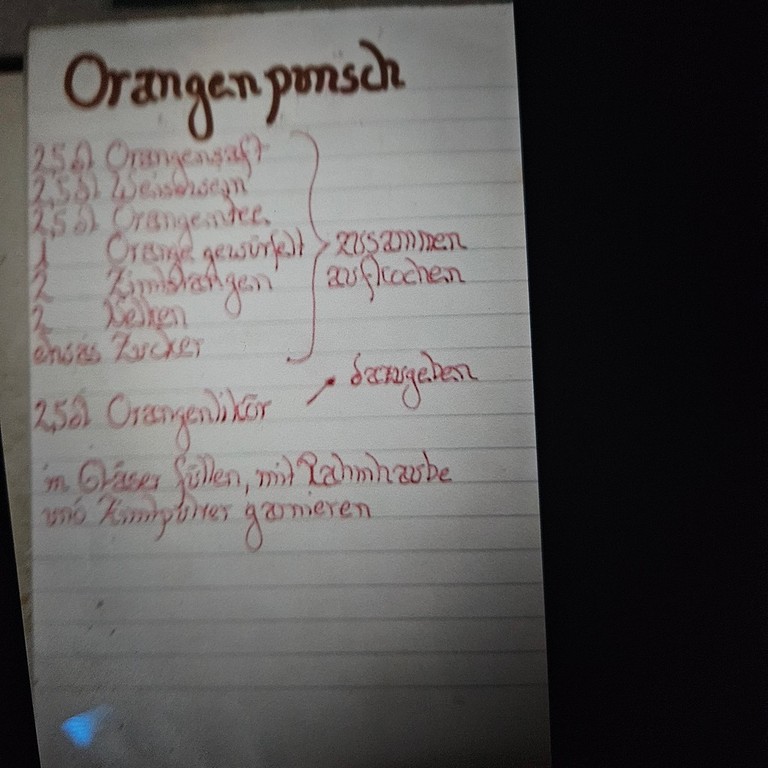 Orangenpunsch
2,5 dl Orangensaft
2,5 dl Weisswein
2,5 dl Orangentee
1 Orange gewürfelt
2 Zimtstangen
2 Nelken
etwas Zucker
zusammen
aufkochen
dazugeben
2,5 dl Orangenlikör
in Gläser füllen, mit Rahmhaube
und Zimtpulver garnieren